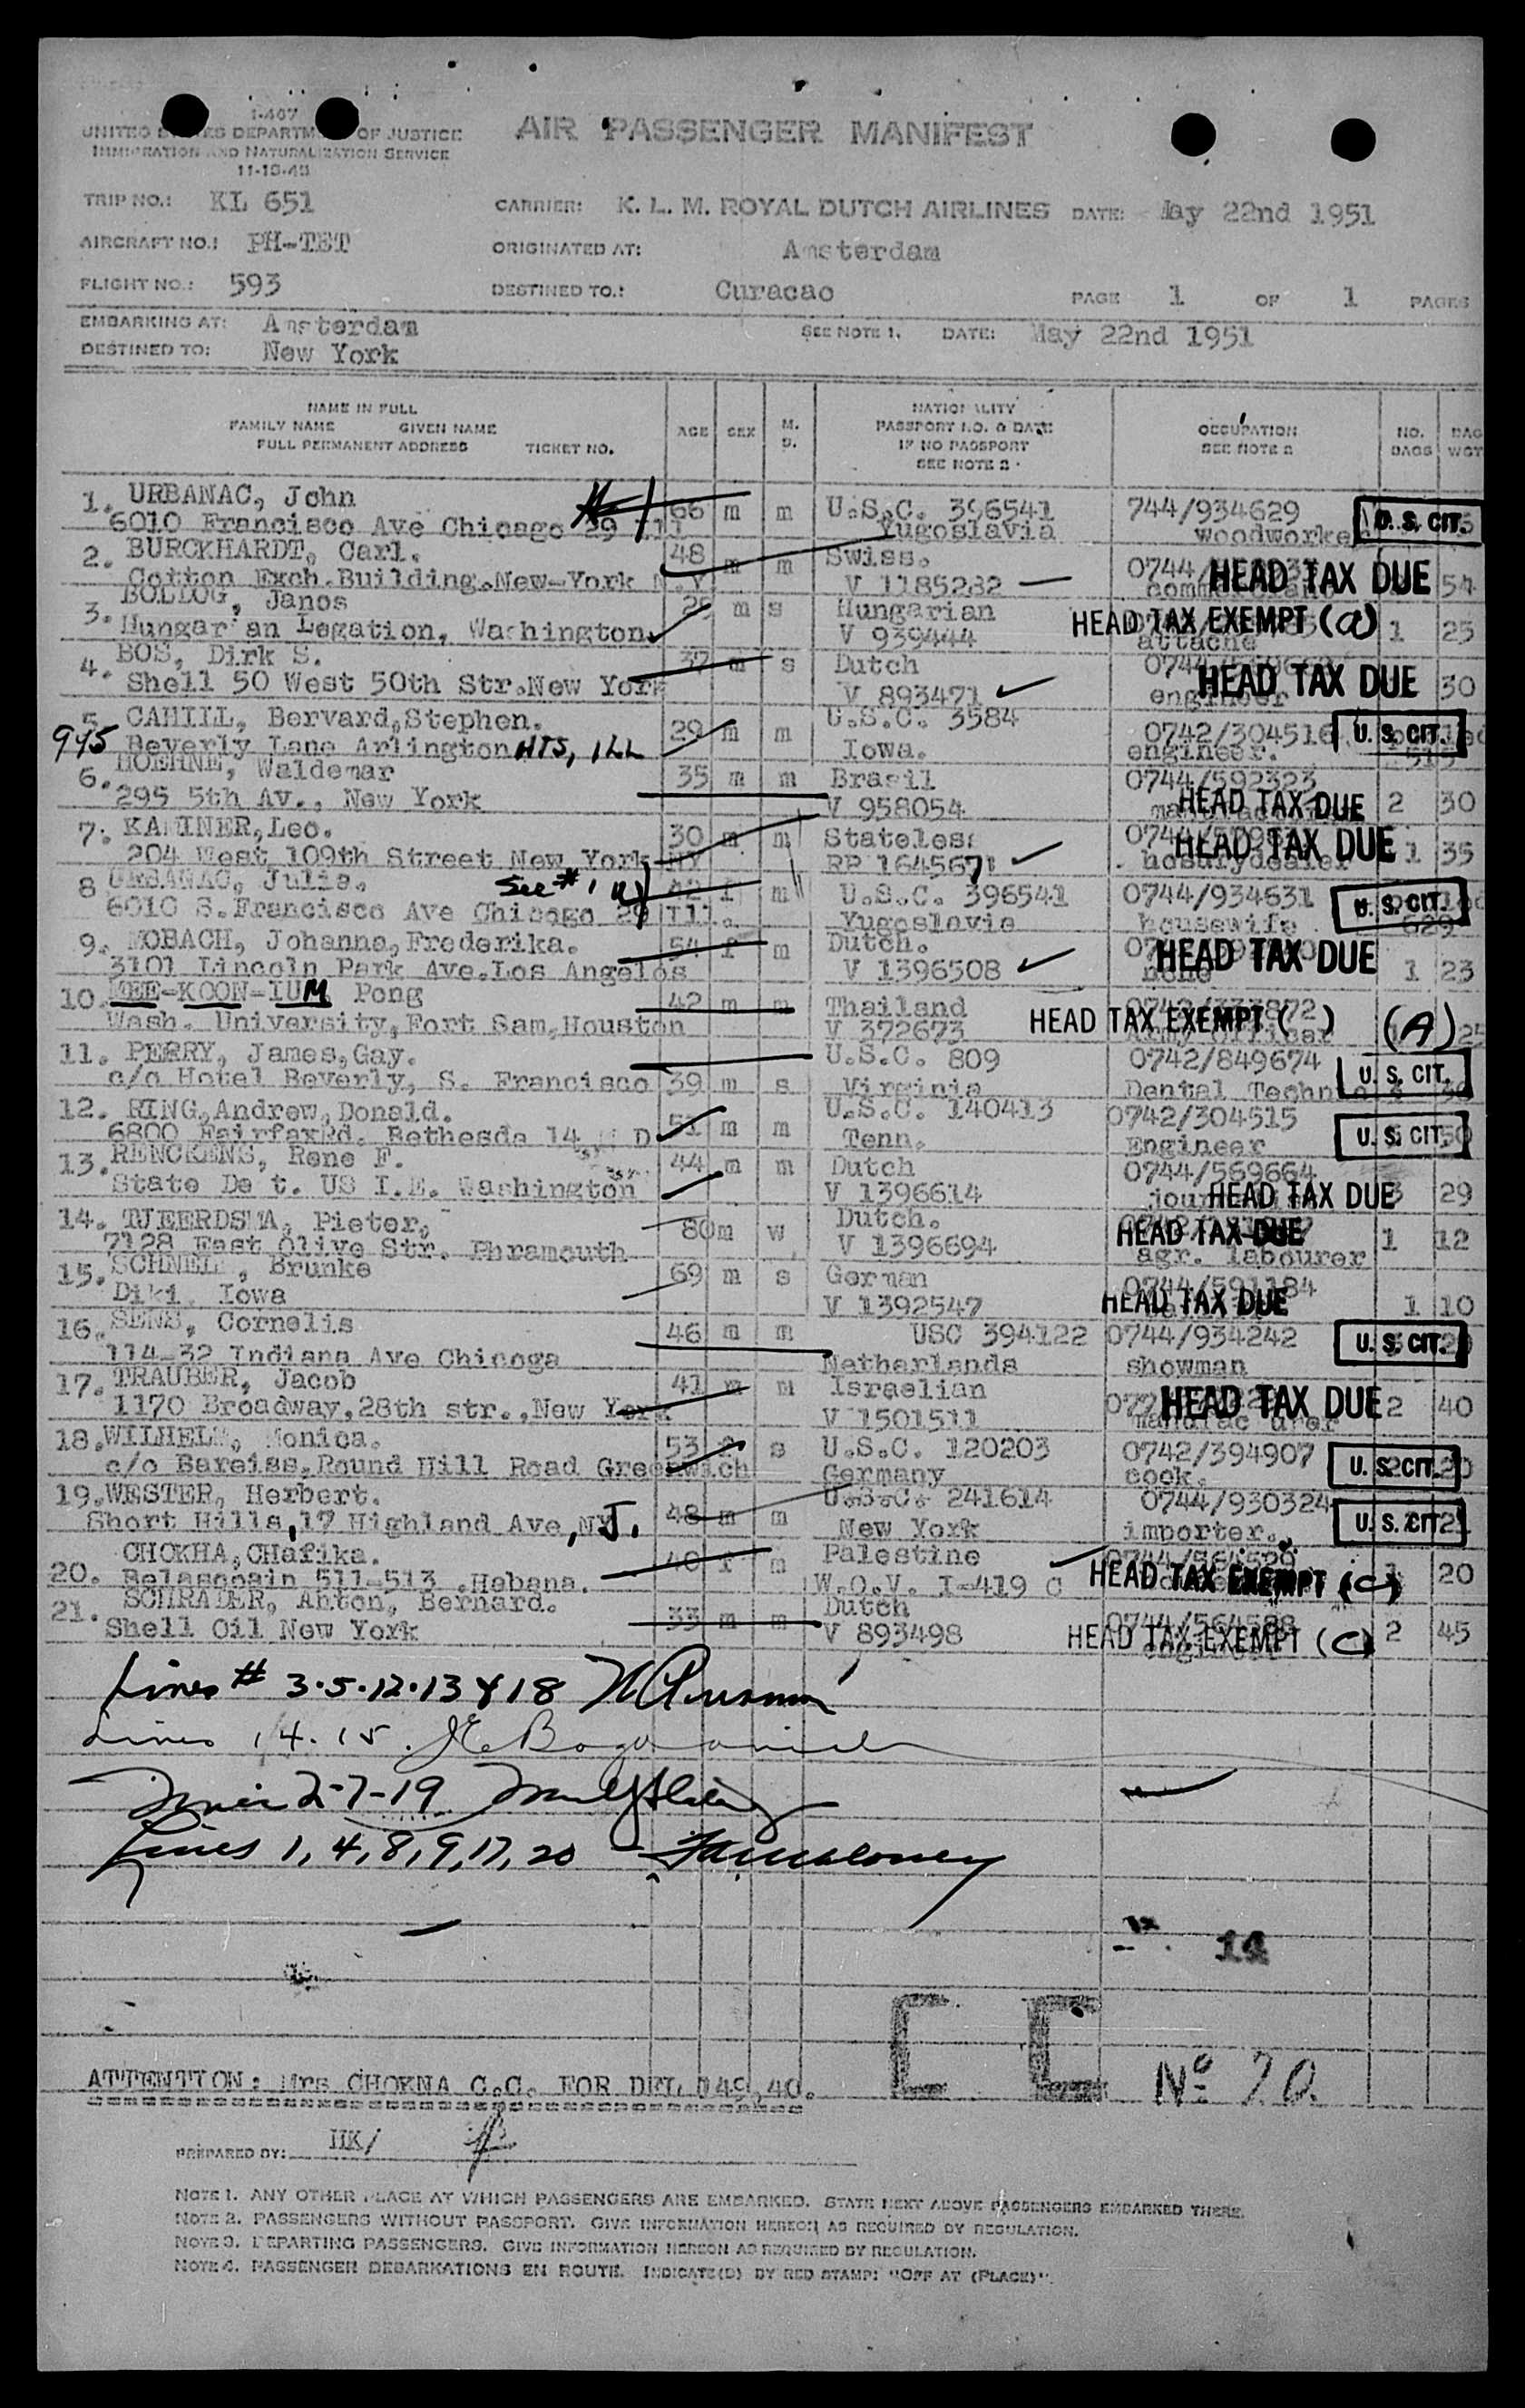 I-407
UNITED STATES DEPARTMENT OF JUSTICE
IMMIGRATION AND NATURALIZATION SERVICE
11-18-48
AIR PASSENGER MANIFEST
TRIP NO.: KL 651 CARRIER: K. L. M. ROYAL DUTCH AIRLINES DATE: May 22nd 1951
AIRCRAFT NO.: PH-TET ORIGINATED AT: Amsterdam
FLIGHT NO.: 593 DESTINED TO.: Curacao PAGE 1 OF 1 PAGES
EMBARKING AT: Amsterdam SEE NOTE 1. DATE: May 22nd 1951
DESTINED TO: New York
NAME IN FULL
FAMILY NAME GIVEN NAME
FULL PERMANENT ADDRESS TICKET NO.
AGE SEX M. S.
NATIONALITY
PASSPORT NO. & DATE
IF NO PASSPORT
SEE NOTE 2
OCCUPATION
SEE NOTE 2
NO. BAGS
BAG WGT
1. URBANAC, John 66 m m U.S.C. 396541 744/934629
6010 Francisco Ave Chicago 29 Ill Yugoslavia woodworke U. S. CIT.
2. BURCKHARDT, Carl. 48 m m Swiss. 0744/ HEAD TAX DUE 54
Cotton Exch.Building.New-York N.Y V 1185282
3. BOLDOG, Janos m s Hungarian HEAD TAX EXEMPT (a) 1 25
Hungar an Legation, Washington V 939444 attache
4. BOS, Dirk S. 37 m s Dutch 0744/ HEAD TAX DUE 30
Shell 50 West 50th Str.New York V 893471 engineer
5. CAHILL, Bervard,Stephen. 29 m m U.S.C. 3584 0742/304516 U. S. CIT.
945 Beverly Lane Arlington HTS, ILL Iowa. engineer. 515
6. HOEHNE, Waldemar 35 m m Brasil 0744/592323
295 5th Av., New York V 958054 HEAD TAX DUE 2 30
7. KAMINER,Leo. 30 m m Stateless HEAD TAX DUE 1 35
204 West 109th Street New York NY RP 1645671
8 URBANAC, Julia. See # 1 42 f m U.S.C. 396541 0744/934631 U. S. CIT.
6010 S.Francisco Ave Chicago 29 Ill. Yugoslavia housewife 629
9. MOBACH, Johanna,Frederika. 54 f m Dutch. HEAD TAX DUE
3101 Lincoln Park Ave.Los Angelos V 1396508 none 1 23
10. MEE-KOON-IUM Pong 42 m m Thailand
Wash. University,Fort Sam,Houston V 372673 HEAD TAX EXEMPT ( ) (A) 25
11. PERRY, James,Gay. U.S.C. 809 0742/849674
c/o Hotel Beverly, S. Francisco 39 m s Virginia Dental Techn U. S. CIT.
12. RING,Andrew,Donald. 51 m m U.S.C. 140413 0742/304515
6800 FairfaxRd. Bethesda 14 M D Tenn. Engineer U. S. CIT. 50
13. RENCKENS, Rene F. 44 m m Dutch 0744/569664
State De t. US I.E. Washington V 1396614 HEAD TAX DUE 3 29
14. TJEERDSMA, Pieter, 80 m w Dutch. HEAD TAX DUE
7128 East Olive Str. Pbramouth V 1396694 agr. labourer 1 12
15. SCHNELL, Brunke 69 m s German 0744/591184
Diki Iowa V 1392547 HEAD TAX DUE 1 10
16. SENS, Cornelis 46 m m USC 394122 0744/934242 U. S. CIT.
114-32 Indiana Ave Chicoga Netherlands showman
17. TRAUBER, Jacob 41 m m Israelian HEAD TAX DUE 2 40
1170 Broadway,28th str.,New York V 1501511
18. WILHELM, Monica. 53 f s U.S.C. 120203 0742/394907
c/o Bareiss.Round Hill Road Greenwich Germany cook. U. S. CIT. 20
19. WESTER, Herbert. 48 m m U.S.C. 241614 0744/930324
Short Hills,17 Highland Ave,NJ. New York importer. U. S. CIT.
20. CHOKHA,CHafika. 40 f m Palestine
Belascoain 511-513 .Habana. W.O.V. I-419 C HEAD TAX EXEMPT (C) 20
21. SCHRADER, Anton, Bernard. 33 m m Dutch 0744/564588
Shell Oil New York V 893498 HEAD TAX EXEMPT (C) 2 45
Lines # 3.5.12.13 & 18
Lines 14.15.
Lines 2-7-19
Lines 1, 4, 8, 9, 17, 20
14
No 20
ATTENTION: Mrs CHOKNA C.C. FOR DFL 149,40.
PREPARED BY: HK/
NOTE 1. ANY OTHER PLACE AT WHICH PASSENGERS ARE EMBARKED. STATE NEXT ABOVE PASSENGERS EMBARKED THERE.
NOTE 2. PASSENGERS WITHOUT PASSPORT. GIVE INFORMATION HEREON AS REQUIRED BY REGULATION.
NOTE 3. DEPARTING PASSENGERS. GIVE INFORMATION HEREON AS REQUIRED BY REGULATION.
NOTE 4. PASSENGER DEBARKATIONS EN ROUTE. INDICATE(D) BY RED STAMP: "OFF AT (PLACE)".